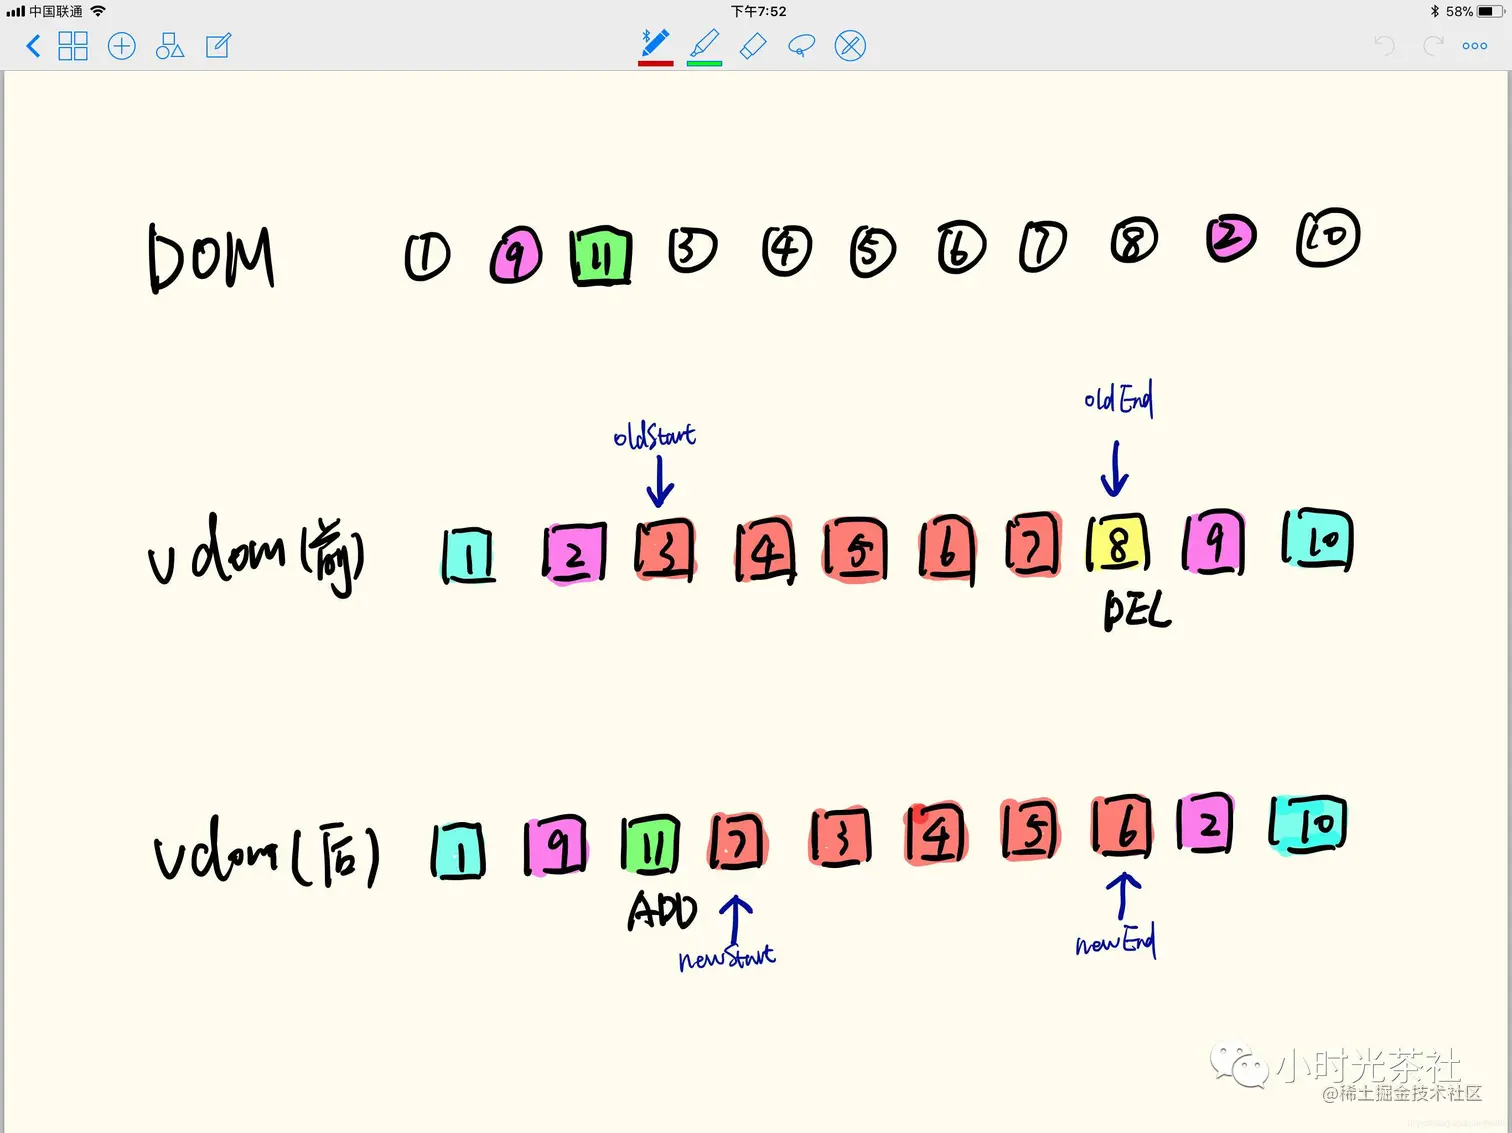 中国联通 下午7:52 58%
DOM 1 9 11 3 4 5 6 7 8 2 10
oldStart oldEnd
vdom(前) 1 2 3 4 5 6 7 8 9 10
DEL
vdom(后) 1 9 11 7 3 4 5 6 2 10
ADD
newStart newEnd
小时光茶社
@稀土掘金技术社区